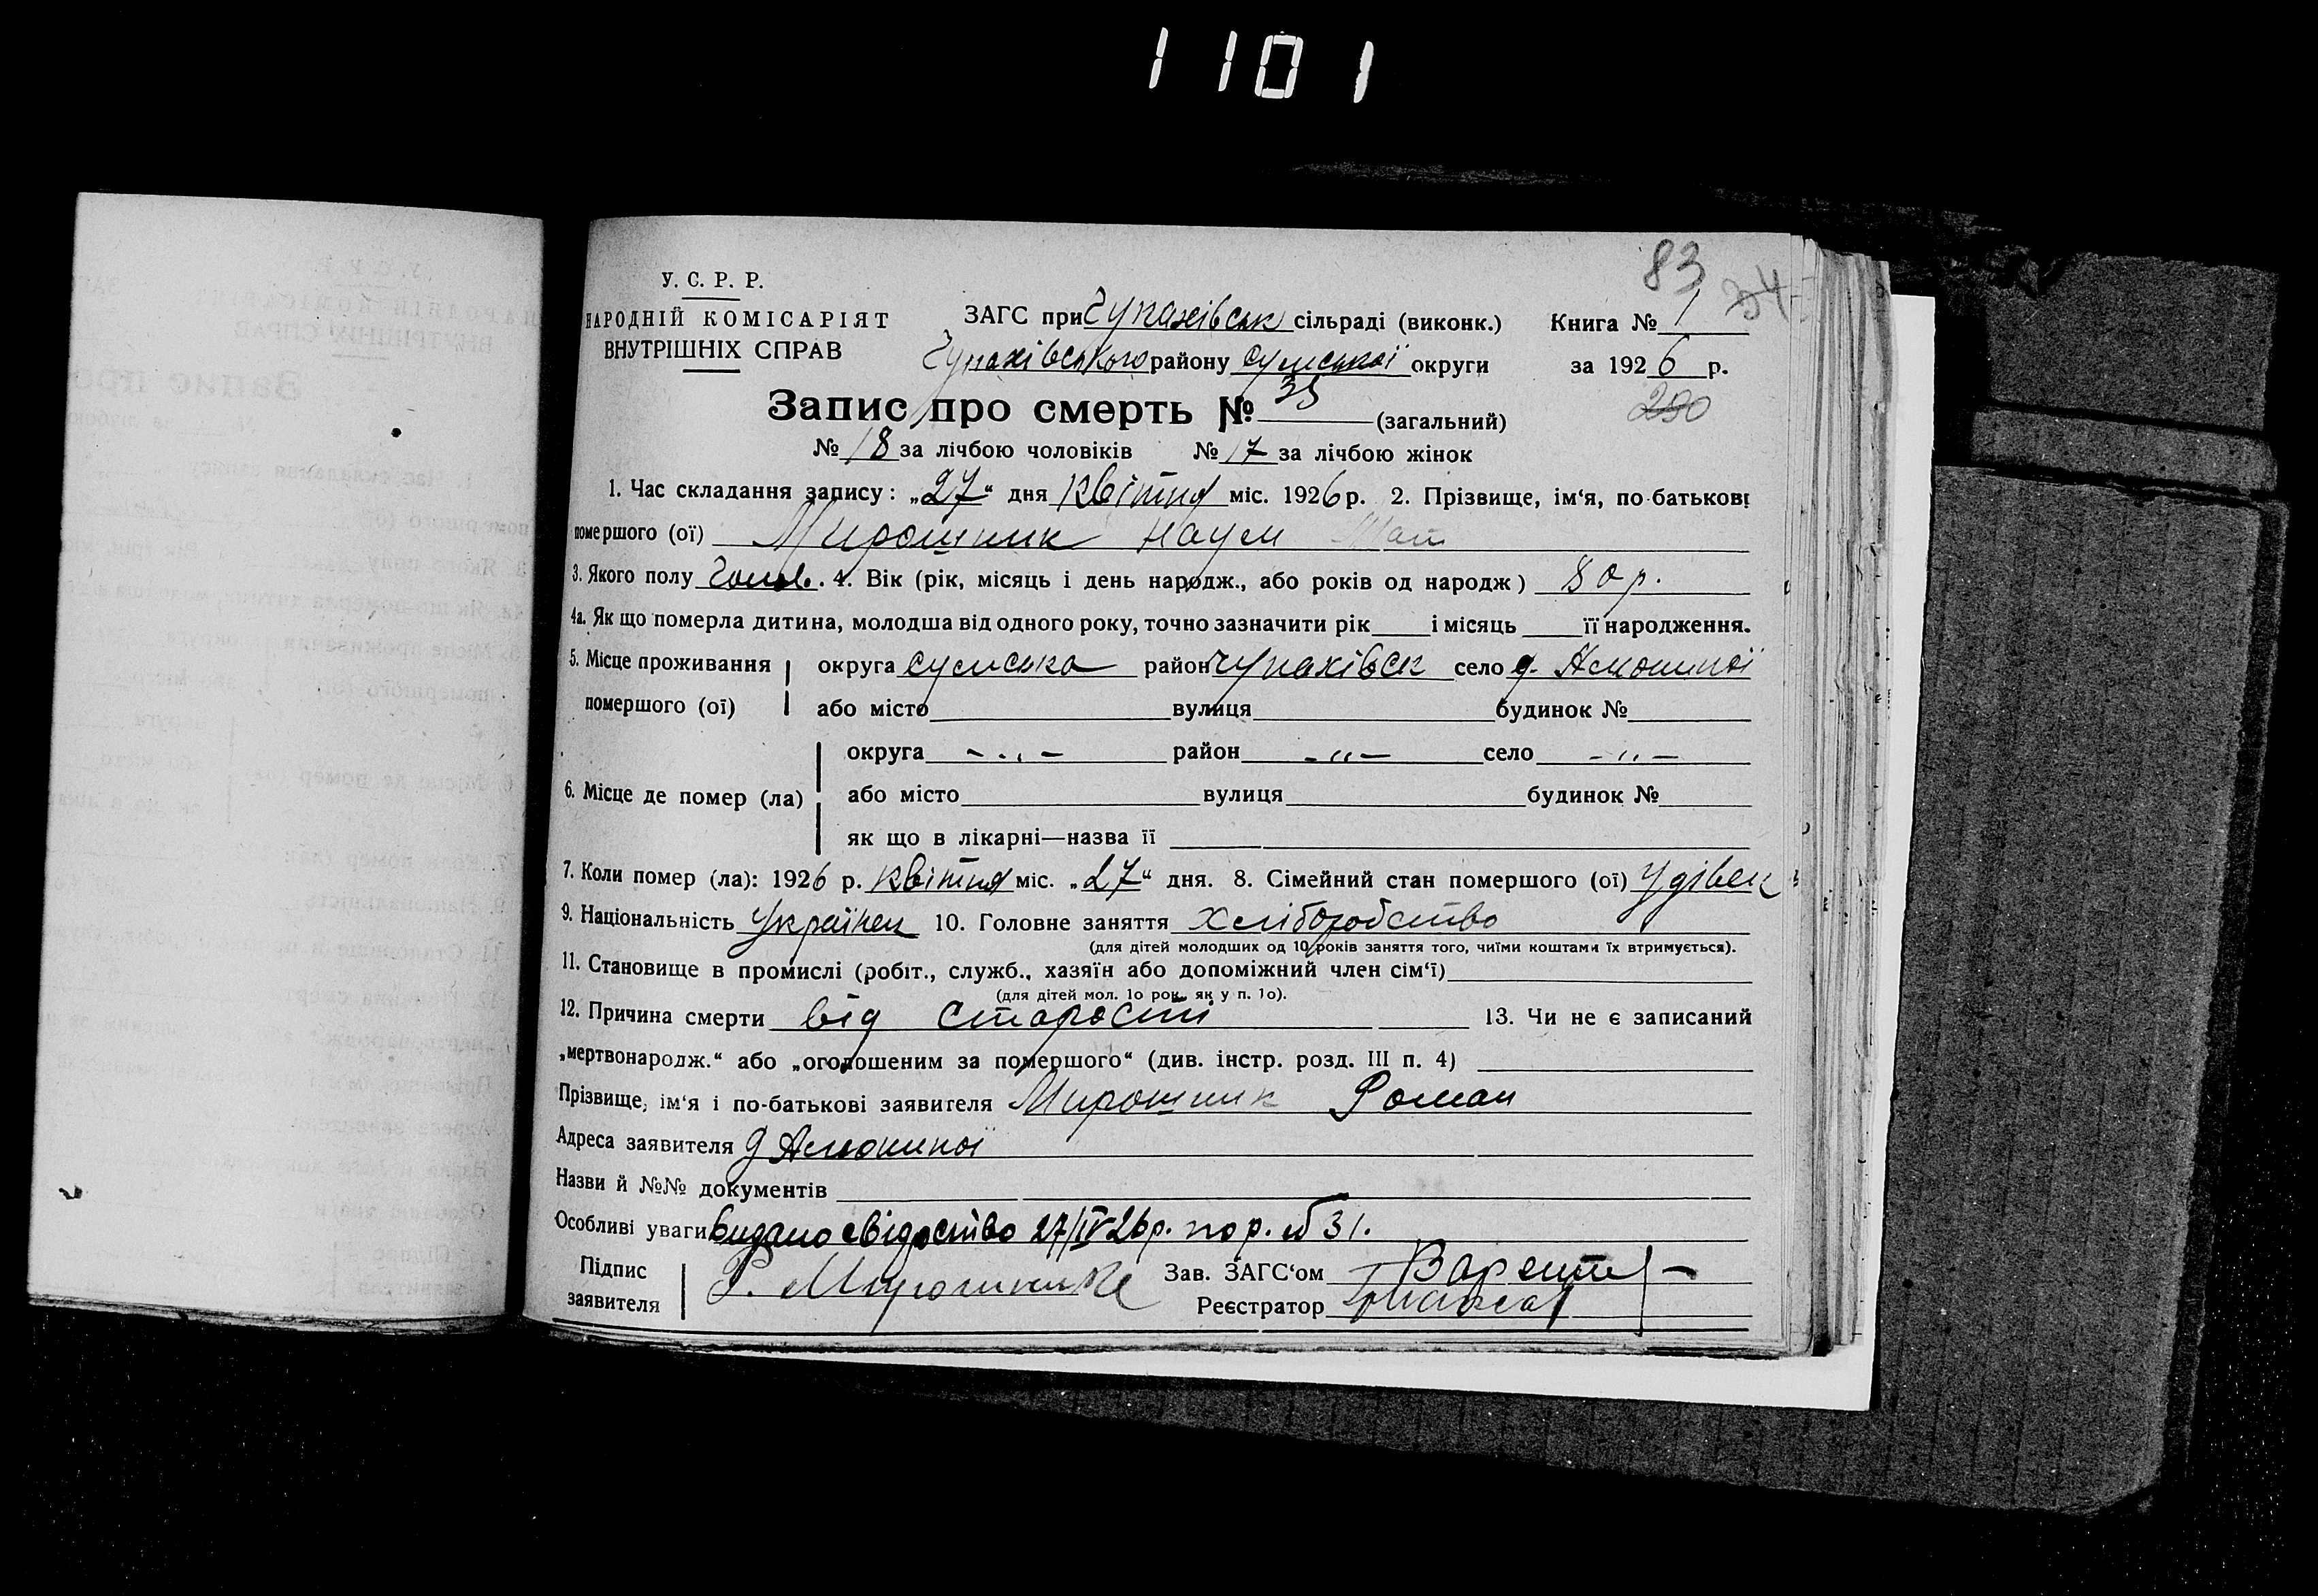 1101
83
У. С. Р. Р.
НАРОДНІЙ КОМІСАРІЯТ
ВНУТРІШНІХ СПРАВ
ЗАГС при Чупахівськ сільраді (виконк.) Книга № 1
Чупахівського району Сумської округи за 1926 р.
Запис про смерть № 35 (загальний) 290
№ 18 за лічбою чоловіків № 17 за лічбою жінок
1. Час складання запису: „27“ дня квітня міс. 1926 р. 2. Прізвище, ім‘я, по-батькові
помершого (ої) Мирошник Наум
3. Якого полу чолов. 4. Вік (рік, місяць і день народж., або років од народж) 80 р.
4а. Як що померла дитина, молодша від одного року, точно зазначити рік і місяць її народження.
5. Місце проживання округа Сумська район Чупахівск село
помершого (ої) або місто вулиця будинок №
округа -„- район -„- село -„-
6. Місце де помер (ла) або місто вулиця будинок №
як що в лікарні—назва її
7. Коли помер (ла): 1926 р. квітня міс. „27“ дня. 8. Сімейний стан помершого (ої) удівец
9. Національність Українец 10. Головне заняття хліборобство
(для дітей молодших од 10 років заняття того, чиїми коштами їх втримується).
11. Становище в промислі (робіт., служб., хазяїн або допоміжний член сім‘ї)
(для дітей мол. 1о рок. як у п. 1о).
12. Причина смерти від старости 13. Чи не є записаний
„мертвонародж.“ або „оголошеним за помершого“ (див. інстр. розд. III п. 4)
Прізвище, ім‘я і по-батькові заявителя Мирошник Роман
Адреса заявителя
Назви й №№ документів
Особливі уваги видано свідоство 27/IV 26 р. по р. № 31.
Підпис
заявителя Р. Мирошник
Зав. ЗАГС‘ом
Реєстратор